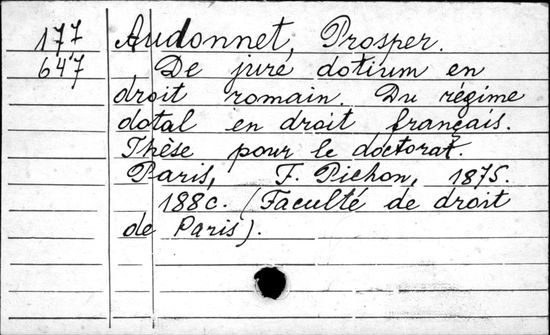 177 Audonnet, Prosper.
647 De jure dotium en
droit romain. Du régime
dotal en droit français.
Thèse pour le doctorat.
Paris, F. Pichon, 1875.
188c. (Faculté de droit
de Paris).